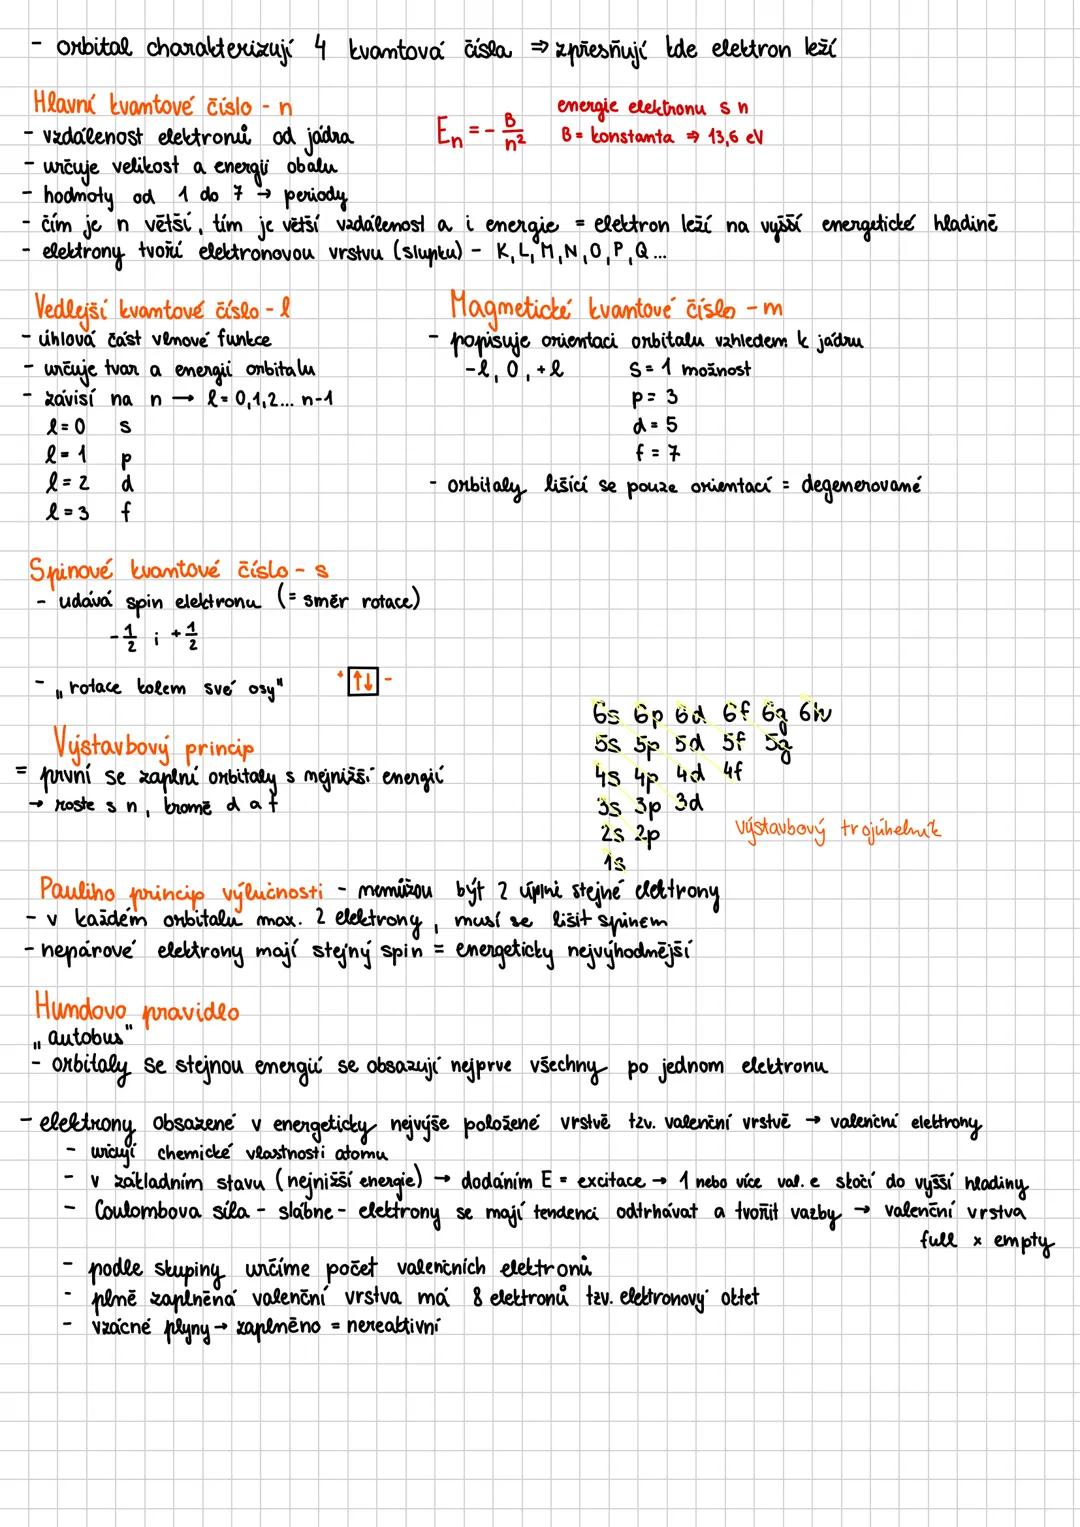 - orbital charakterizují 4 kvantová čísla ⇒ zpřesňují kde elektron leží
Hlavní kvantové číslo - n
- vzdálenost elektronů od jádra
- určuje velikost a energii obalu
- hodnoty od 1 do 7 → periody
En = - B/n²
energie elektronu s n
B = konstanta ⇒ 13,6 eV
- čím je n větší, tím je větší vzdálenost a i energie = elektron leží na vyšší energetické hladině
- elektrony tvoří elektronovou vrstvu (slupku) - K, L, M, N, O, P, Q...
Vedlejší kvantové číslo - l
- úhlová část vlnové funkce
- určuje tvar a energii orbitalu
- závisí na n → l = 0,1,2... n-1
l = 0 s
l = 1 p
l = 2 d
l = 3 f
Magnetické kvantové číslo - m
- popisuje orientaci orbitalu vzhledem k jádru
-l, 0, +l
s = 1 možnost
p = 3
d = 5
f = 7
- orbitaly lišící se pouze orientací = degenerované
Spinové kvantové číslo - s
- udává spin elektronu (= směr rotace)
-1/2 i +1/2
- „rotace kolem své osy" + ↑↓ -
Výstavbový princip
= první se zaplní orbitaly s nejnižší energií
→ roste s n, kromě d a f
6s 6p 6d 6f 6g 6h
5s 5p 5d 5f 5g
4s 4p 4d 4f
3s 3p 3d
2s 2p
1s
výstavbový trojúhelník
Pauliho princip výlučnosti - nemůžou být 2 úplně stejné elektrony
- v každém orbitalu max. 2 elektrony, musí se lišit spinem
- nepárové elektrony mají stejný spin = energeticky nejvýhodnější
Hundovo pravidlo
„autobus"
- orbitaly se stejnou energií se obsazují nejprve všechny po jednom elektronu
- elektrony obsazené v energeticky nejvýše položené vrstvě tzv. valenční vrstvě → valenční elektrony
- určují chemické vlastnosti atomu
- v základním stavu (nejnižší energie) → dodáním E = excitace → 1 nebo více val. e skočí do vyšší hladiny
- Coulombova síla - slábne - elektrony se mají tendenci odtrhávat a tvořit vazby → valenční vrstva
full x empty
- podle skupiny určíme počet valenčních elektronů
- plně zaplněná valenční vrstva má 8 elektronů tzv. elektronový oktet
- vzácné plyny → zaplněno = nereaktivní